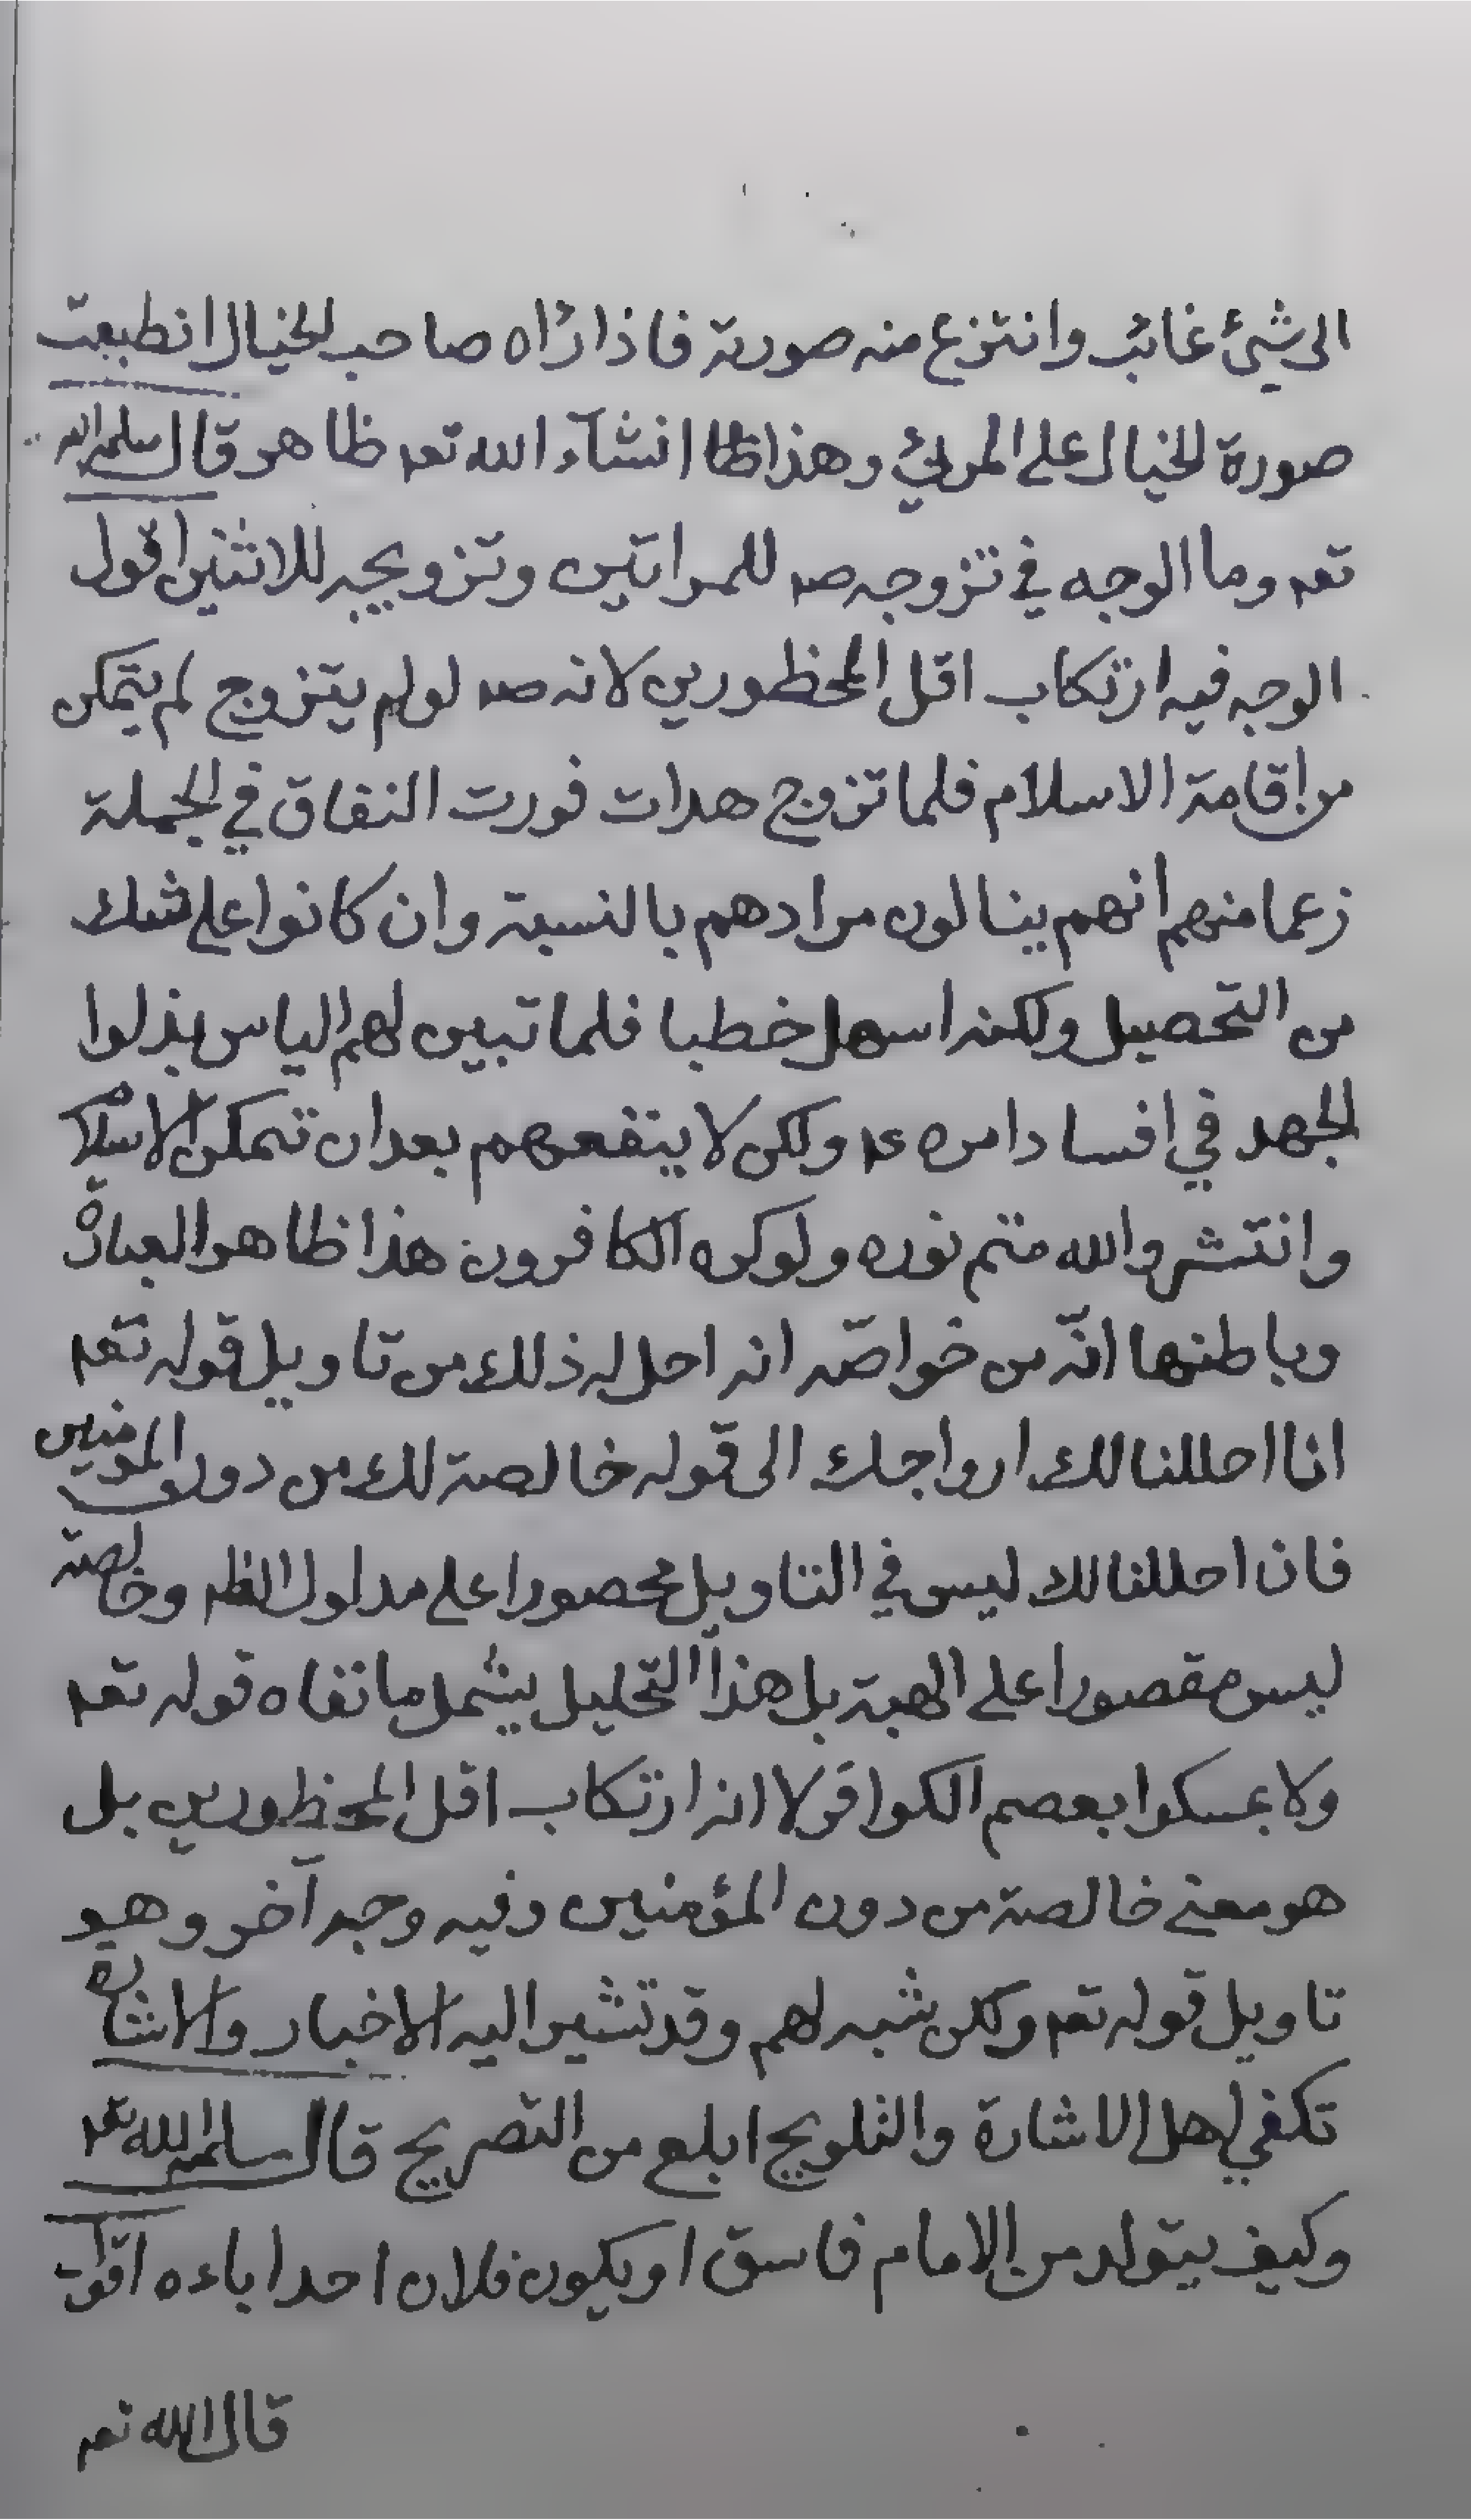 الى شيئ غائب وانتزع منه صورته فاذا رٰاه صاحب الخيال انطبعت
صورة الخيال على المرئي وهذا ظا انشآء الله تعه ظاهر قال سلمه الله
تعه وما الوجه في تزوجه صه للمراتين وتزويجه للاثنين اقول
الوجه فيه ارتكاب اقل المحظورين لانه صه لو لم يتزوج لم يتمكن
من اقامة الاسلام فلما تزوج هدات فورت النفاق في الجملة
زعما منهم انهم ينالون مرادهم بالنسبة وان كانوا على شك
من التحصيل ولكنه اسهل خطبا فلما تبين لهم الياس بذلوا
الجهد في افساد امره ع۱ ولكن لا ينفعهم بعد ان تمكن الاسلام
وانتشر والله متم نوره ولو كره الكافرون هذا ظاهر العبارة
وباطنها انّه من خواصّه انه احل له ذلك من تاويل قوله تعه
انا احللنا لك ازواجك الى قوله خالصة لك من دون المومنين
فان احللنا لك ليس في التاويل محصورا على مدلول الظه وخالصة
ليس مقصورا على الهبة بل هذا التحليل يشمل ما نفاه قوله تعه
ولا تمسكوا بعصم الكوافر لا انه ارتكاب اقل المحظورين بل
هو معنى خالصة من دون المؤمنين وفيه وجه آخر وهو
تاويل قوله تعه ولكن شبه لهم وقد تشير اليه الاخبار والاشارة
تكفي لاهل الاشارة والتلويح ابلغ من التصريح قال سلمه الله تعه
وكيف يتولد من الامام فاسق او يكون فلان احد اباءه اقول
قال الله تعه